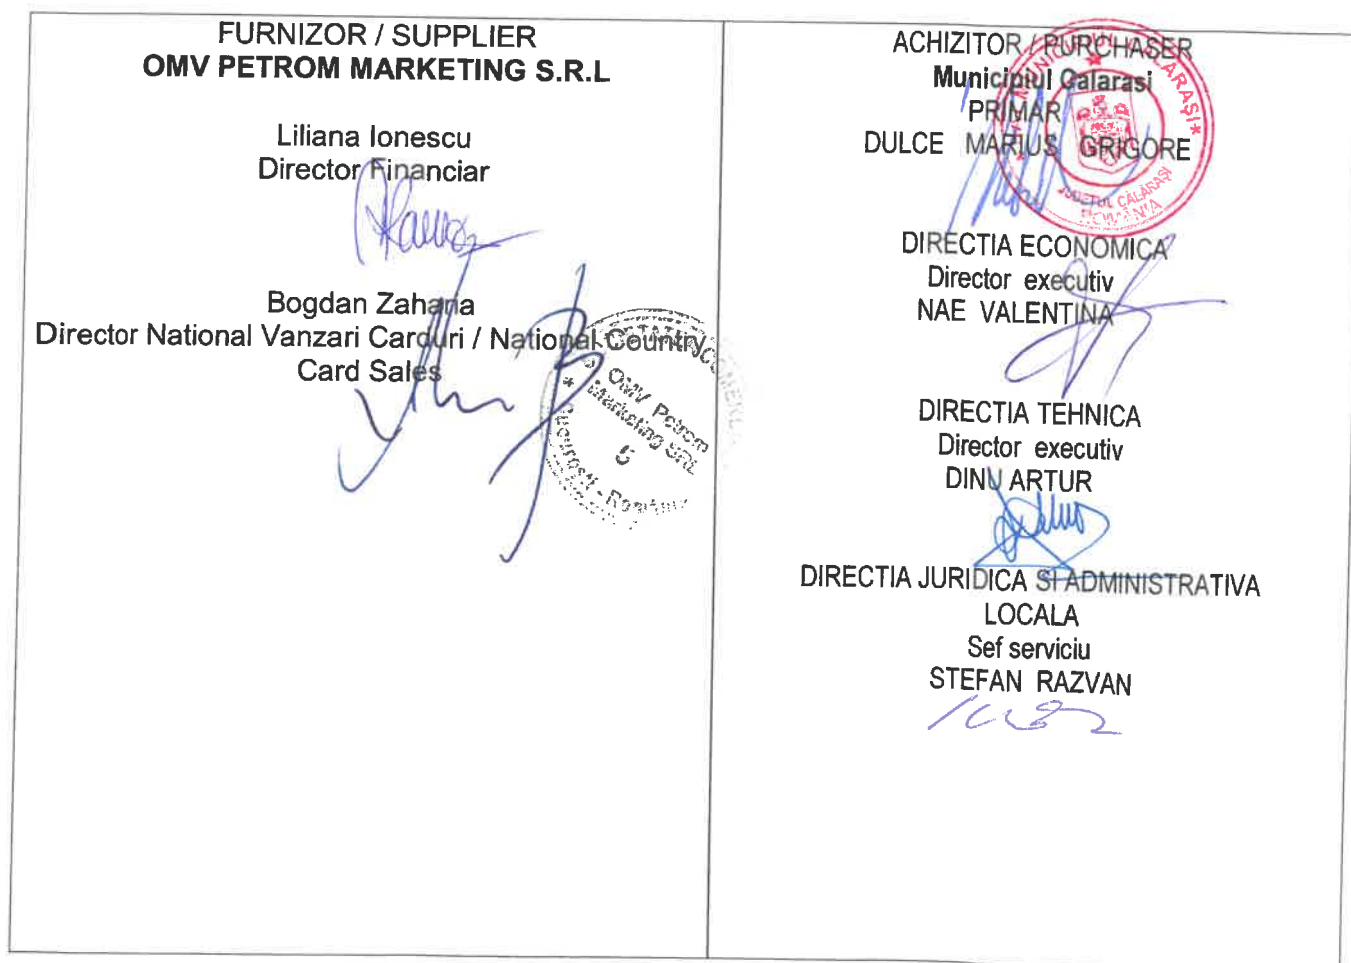 FURNIZOR / SUPPLIER
OMV PETROM MARKETING S.R.L
Liliana Ionescu
Director Financiar
Bogdan Zaharia
Director National Vanzari Carduri / National Country
Card Sales
OMV Petrom
Marketing SRL
5
București - România
ACHIZITOR / PURCHASER
Municipiul Calarasi
PRIMAR
DULCE MARIUS GRIGORE
JUDEȚUL CĂLĂRAȘI
ROMÂNIA
DIRECTIA ECONOMICA
Director executiv
NAE VALENTINA
DIRECTIA TEHNICA
Director executiv
DINU ARTUR
DIRECTIA JURIDICA SI ADMINISTRATIVA
LOCALA
Sef serviciu
STEFAN RAZVAN